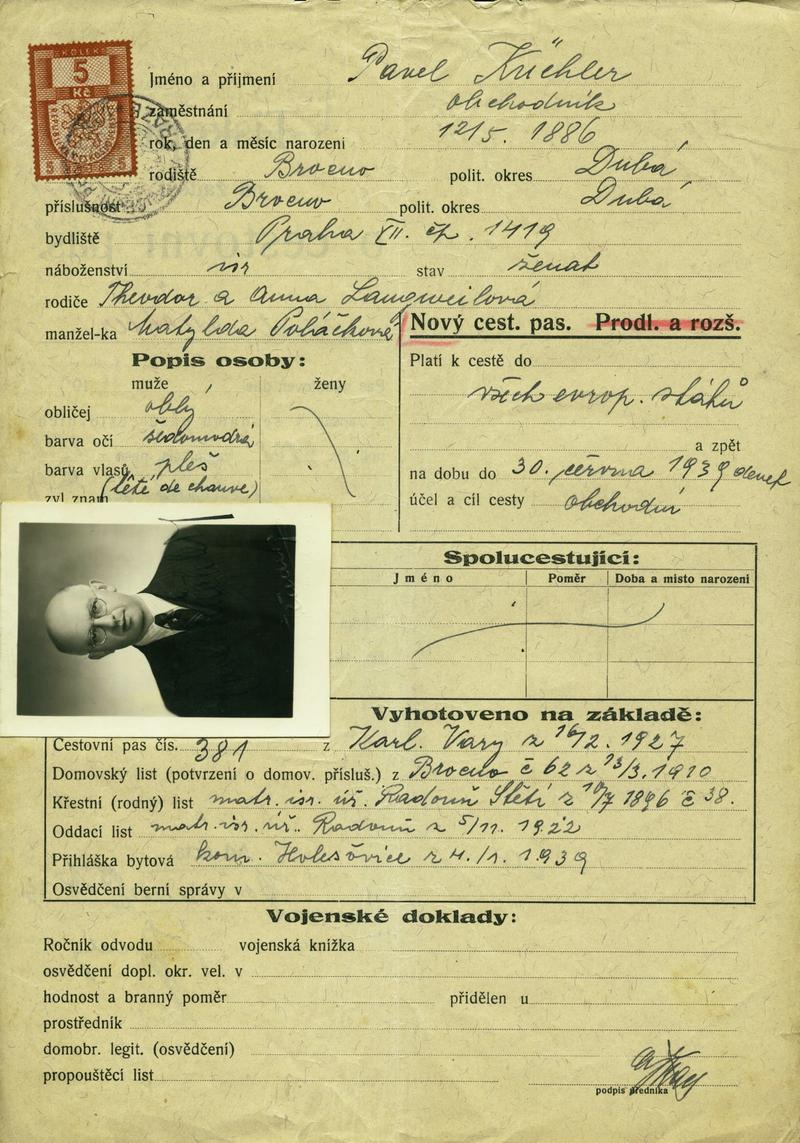 KOLEK
5
Kč
Jméno a příjmení Pavel Küchler
zaměstnání obchodník
rok, den a měsíc narození 12/5. 1886
rodiště Broceno polit. okres Dubá
příslušnost Broceno polit. okres Dubá
bydliště Praha VII. čp. 1419
náboženství isr stav ženat
rodiče Theodor a Anna Langweilová
manžel-ka Matylda Poláčková
Nový cest. pas. Prodl. a rozš.
Popis osoby:
muže ženy
obličej oblý
barva očí šedomodrá
barva vlasů pleš
(tête de chauve)
zvl. znam
Platí k cestě do
všech evrop. států
a zpět
na dobu do 30. června 1939
účel a cíl cesty obchodní
Spolucestující:
Jméno Poměr Doba a místo narození
Vyhotoveno na základě:
Cestovní pas čís. 381 z Karl. Vary z 16/2. 1927
Domovský list (potvrzení o domov. přísluš.) z Broceno č 62 z 13/3. 1910
Křestní (rodný) list matr. isr. úř. Radouň Štětí z 10/7 1896 č 38.
Oddací list matr. isr. úř. Radouň z 5/11. 1922
Přihláška bytová kom. Holešovice z 4./1. 1939
Osvědčení berní správy v
Vojenské doklady:
Ročník odvodu vojenská knížka
osvědčení dopl. okr. vel. v
hodnost a branný poměr přidělen u
prostředník
domobr. legit. (osvědčení)
propouštěcí list
podpis úředníka